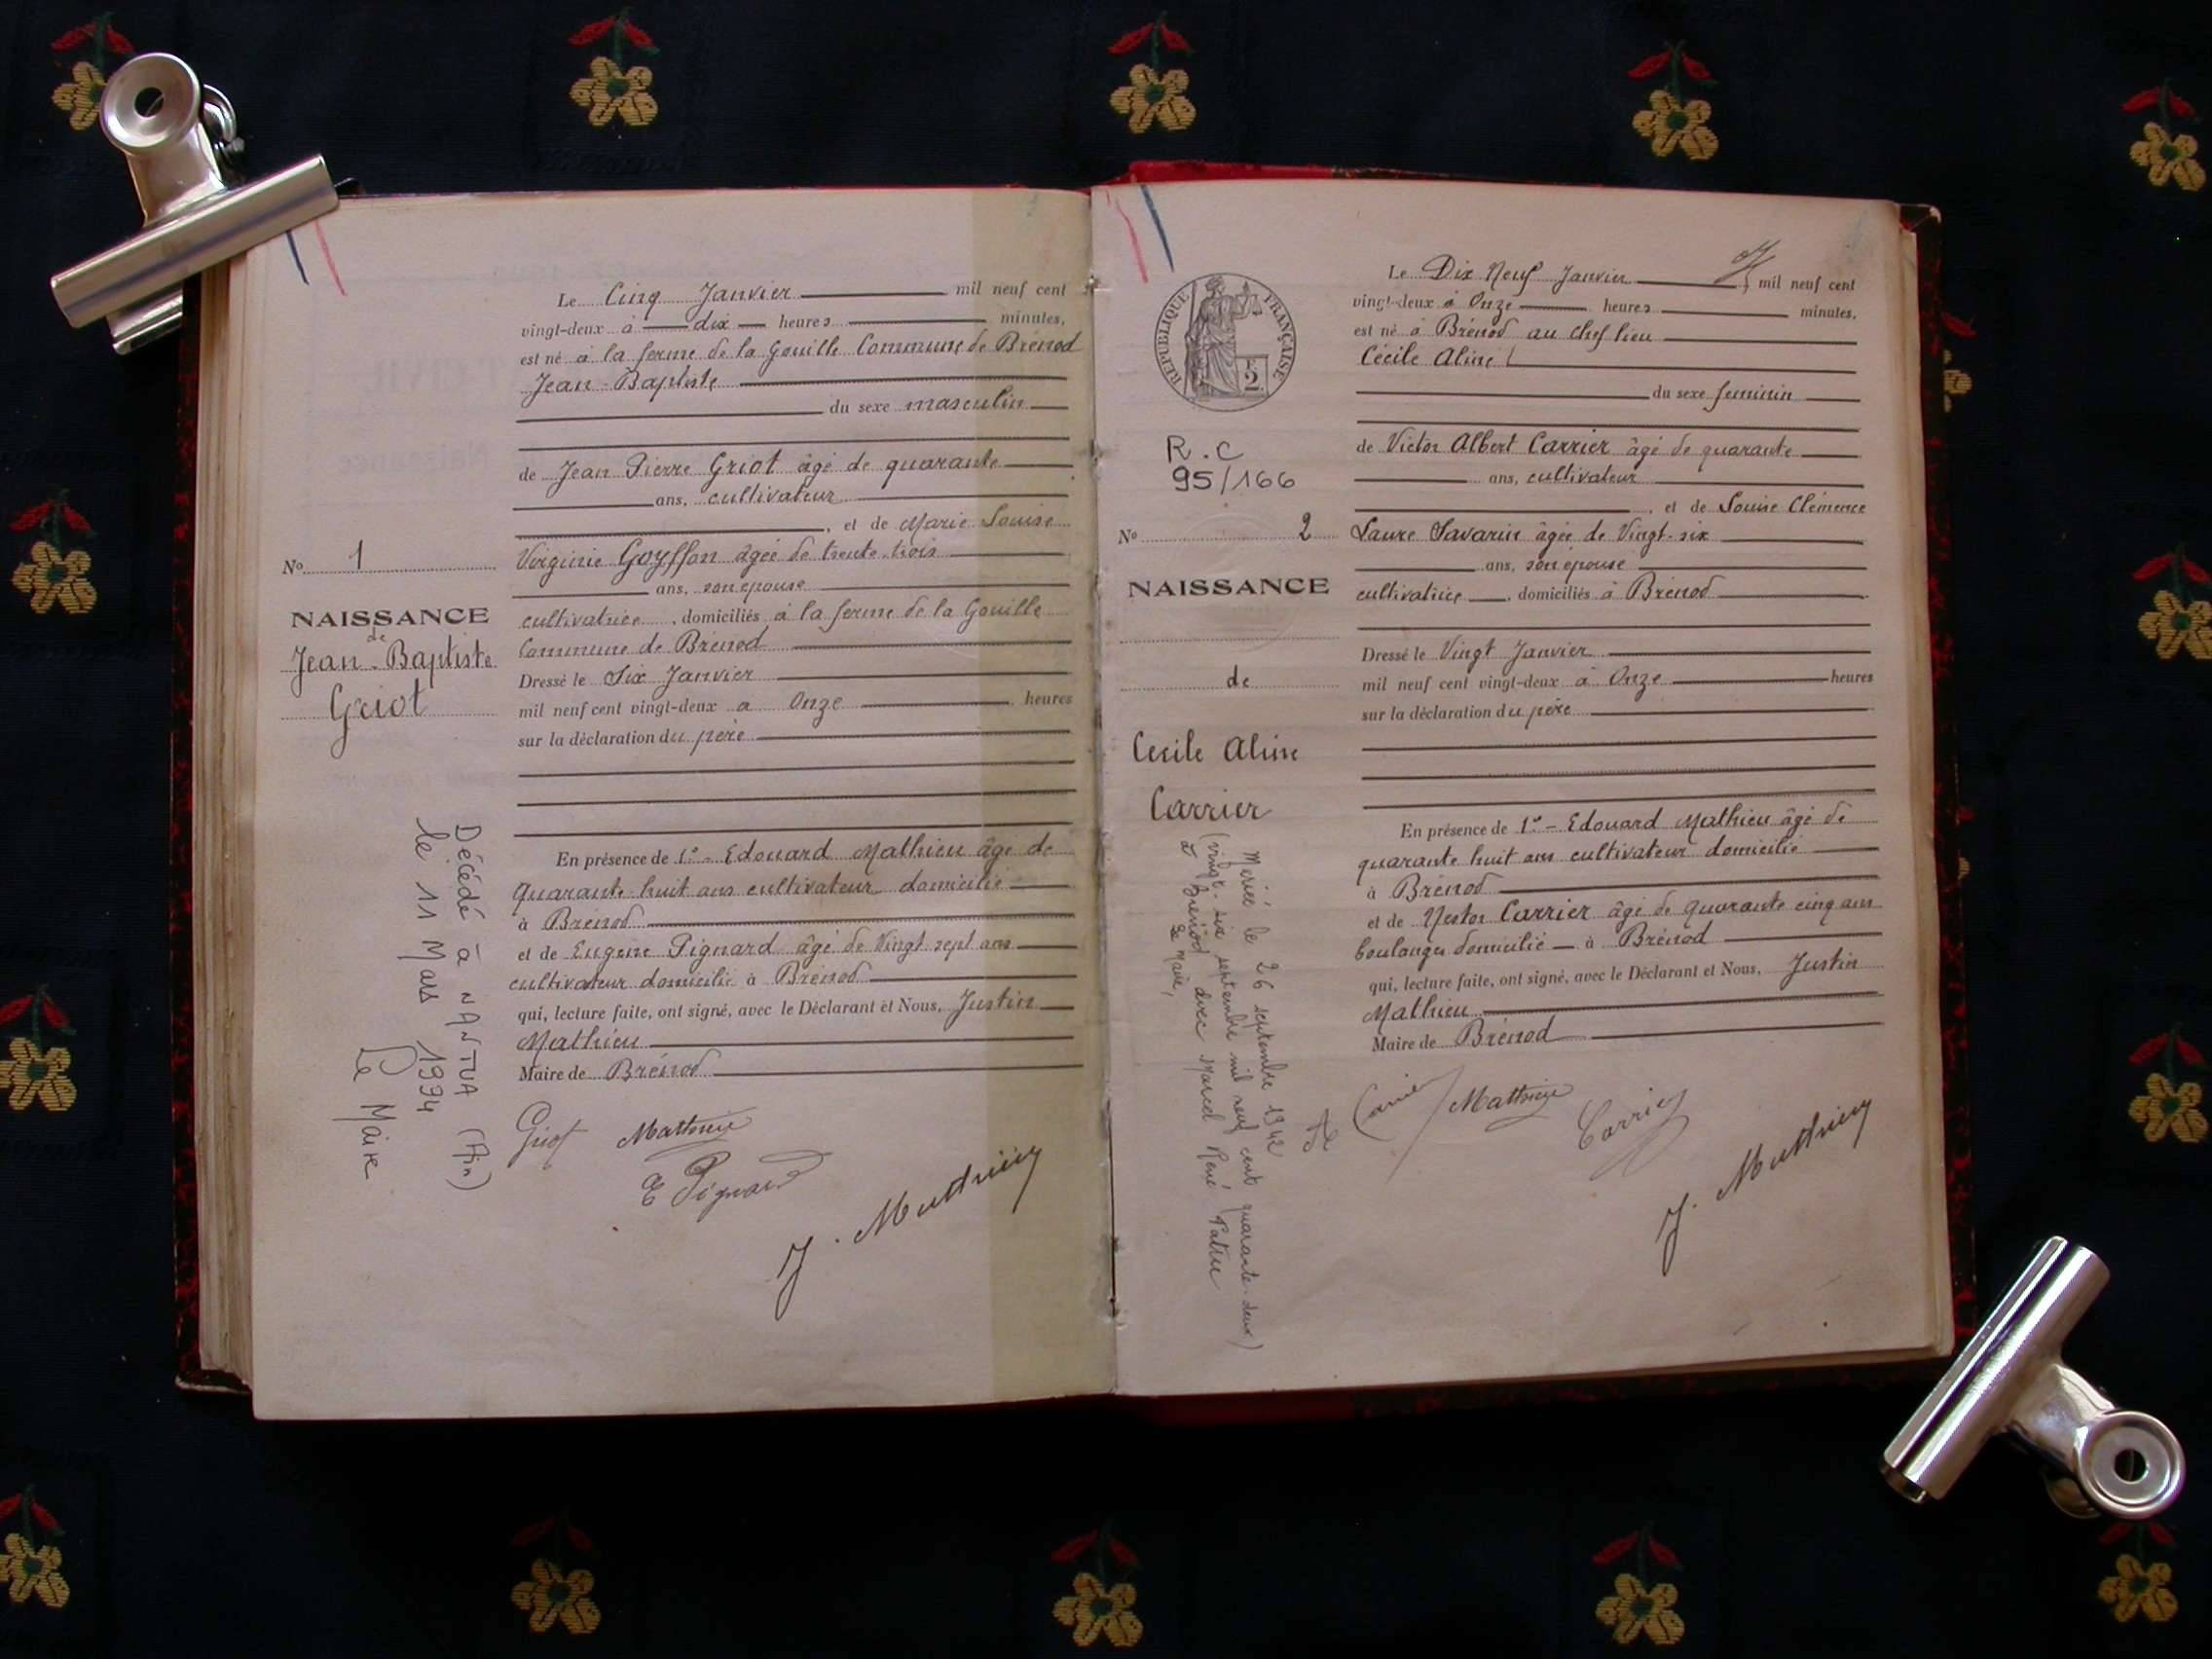 Le Cinq Janvier mil neuf cent
vingt-deux à dix heures minutes,
est né à la ferme de la Gouille Commune de Brénod
Jean-Baptiste
du sexe masculin
de Jean Pierre Griot âgé de quarante
ans, cultivateur
, et de Marie Louise
Virginie Goyffon âgée de trente-trois
ans, son épouse
cultivatrice, domiciliés à la ferme de la Gouille
Commune de Brénod
Dressé le Six Janvier
mil neuf cent vingt-deux à Onze heures
sur la déclaration du père
En présence de 1º- Edouard Mathieu âgé de
quarante-huit ans cultivateur domicilié
à Brénod
et de Eugène Pignard âgé de Vingt sept ans
cultivateur domicilié à Brénod
qui, lecture faite, ont signé, avec le Déclarant et Nous, Justin
Mathieu
Maire de Brénod
Griot Mathieu
E Pignard
J. Mathieu
No 1
NAISSANCE
de
Jean-Baptiste
Griot
Décédé à NANTUA (Ain)
le 11 Mars 1994
Le Maire
RÉPUBLIQUE FRANÇAISE
2
R.C
95/166
No 2
NAISSANCE
de
Cécile Aline
Carrier
Mariée le 26 septembre 1942
(vingt-six septembre mil neuf cent quarante-deux)
à Brénod avec Marcel René
Le Maire,
Le Dix Neuf Janvier mil neuf cent
vingt-deux à Onze heures minutes,
est né à Brénod au chef lieu
Cécile Aline
du sexe feminin
de Victor Albert Carrier âgé de quarante
ans, cultivateur
, et de Louise Clémence
Laure Savarin âgée de Vingt-six
ans, son épouse
cultivatrice, domiciliés à Brénod
Dressé le Vingt Janvier
mil neuf cent vingt-deux à Onze heures
sur la déclaration du père
En présence de 1º- Edouard Mathieu âgé de
quarante huit ans cultivateur domicilié
à Brénod
et de Nestor Carrier âgé de quarante cinq ans
boulanger domicilié à Brénod
qui, lecture faite, ont signé, avec le Déclarant et Nous, Justin
Mathieu
Maire de Brénod
Carrier Mathieu Carrier
J. Mathieu